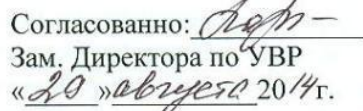 Согласованно:
Зам. Директора по УВР
«29» августа 2014г.